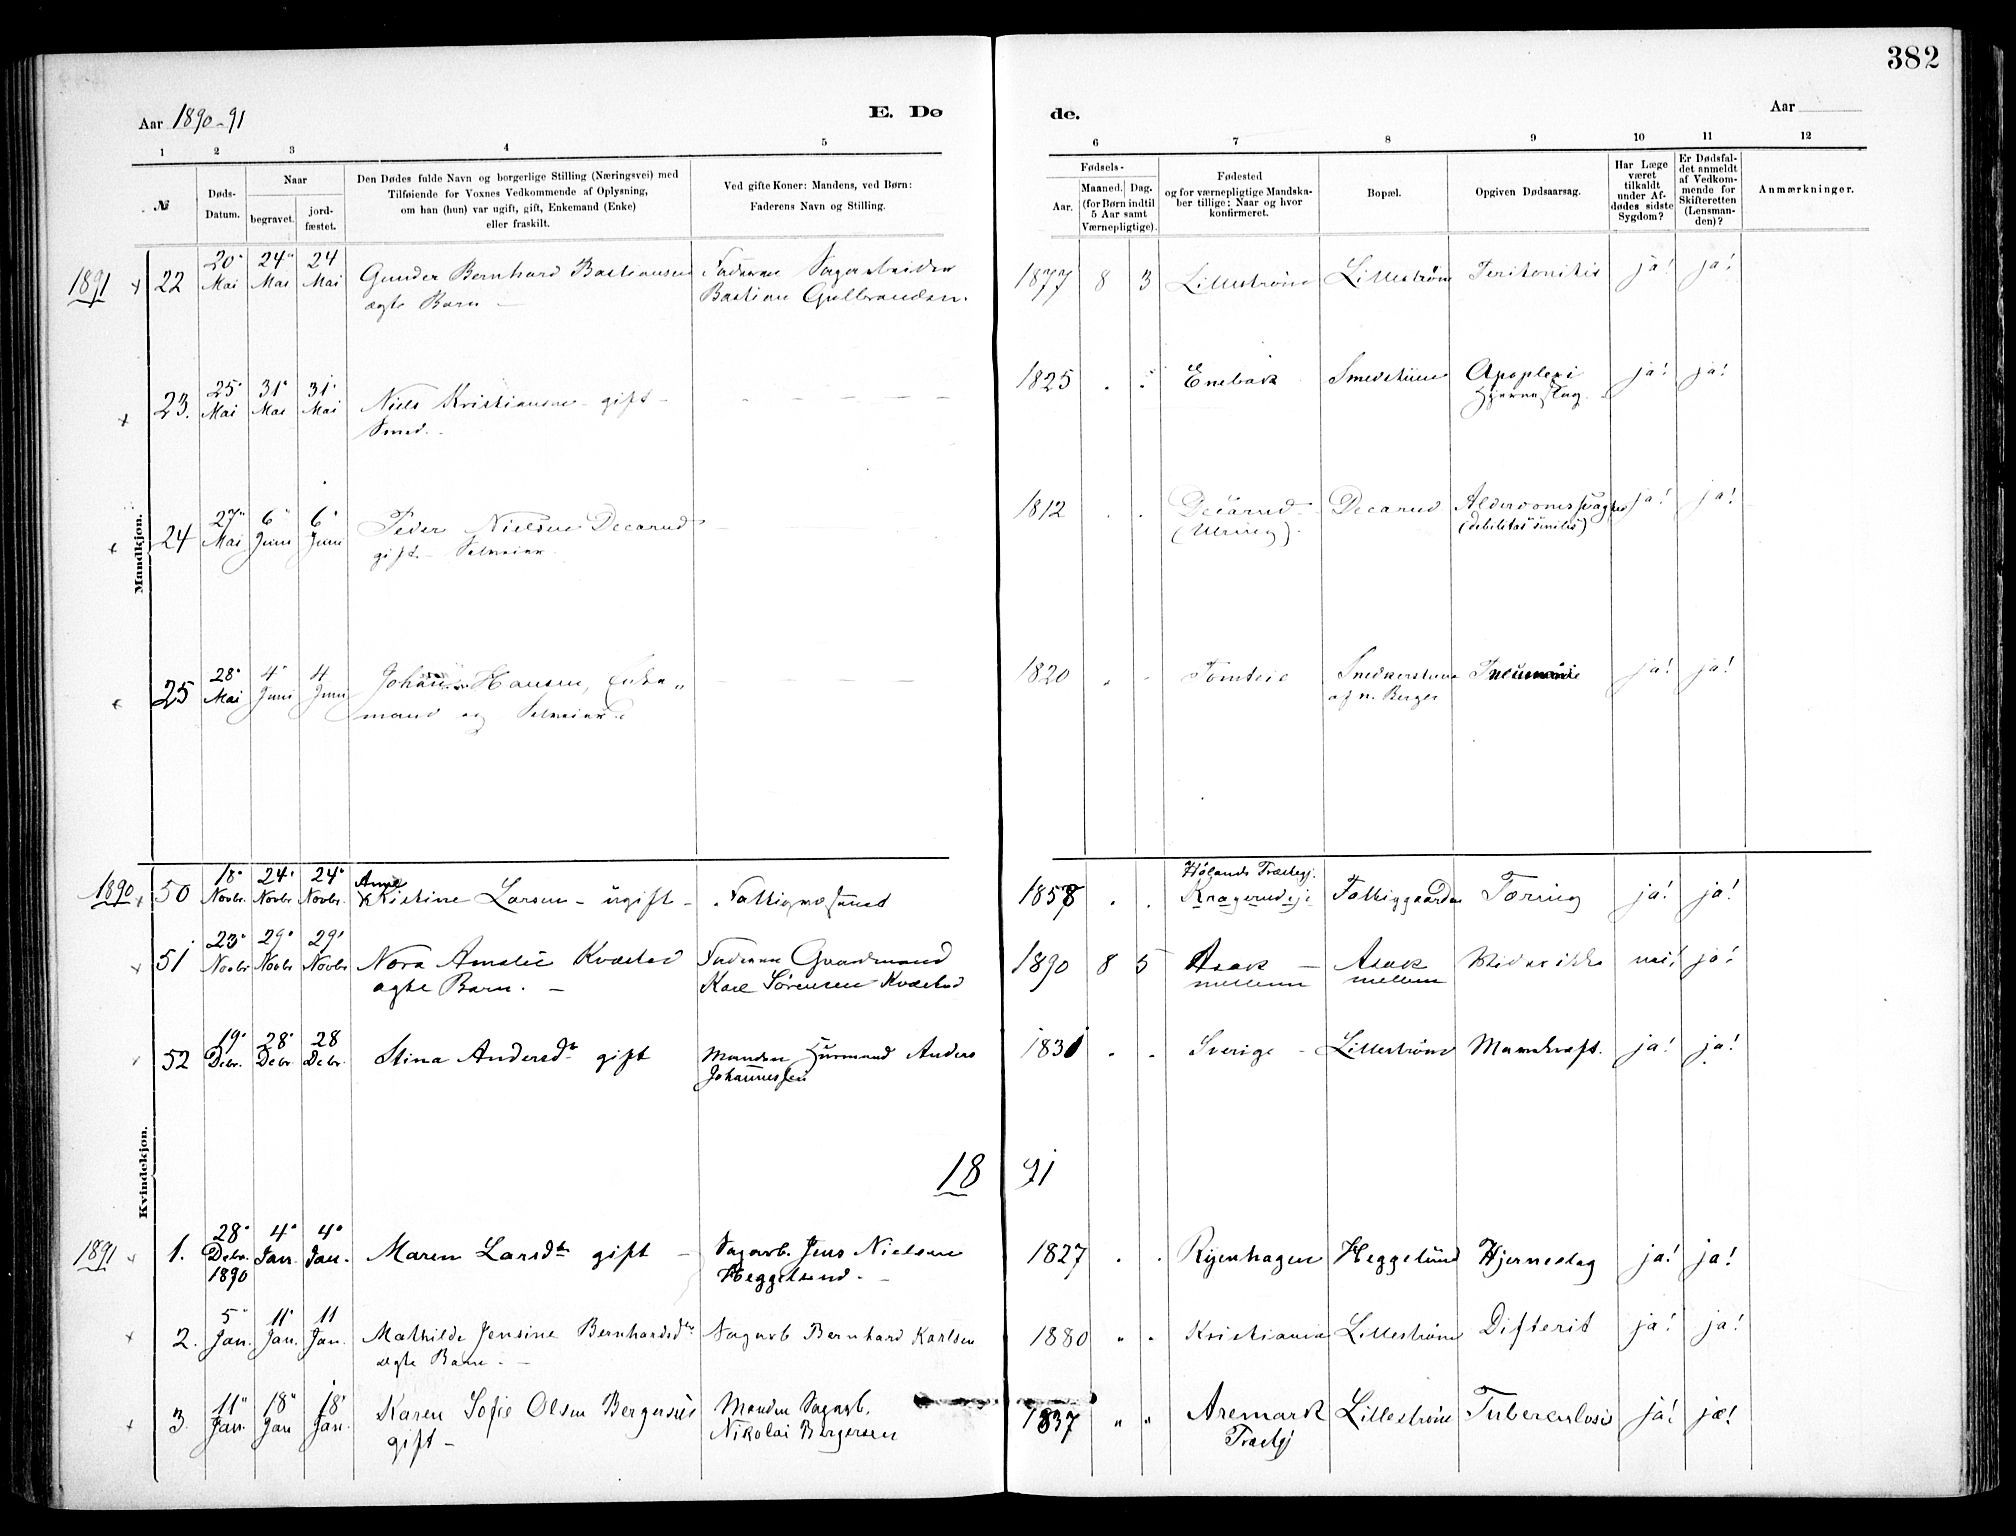 382
Aar 1890-91
E. Dø
de.
Aar
1 2 3 4 5 6 7 8 9 10 11 12
№
Døds-
Datum.
Naar
begravet.
jord-
fæstet.
Den Dødes fulde Navn og borgerlige Stilling (Næringsvei) med
Tilføiende for Voxnes Vedkommende af Oplysning,
om han (hun) var ugift, gift, Enkemand (Enke)
eller fraskilt.
Ved gifte Koner: Mandens, ved Børn:
Faderens Navn og Stilling.
Fødsels-
Aar.
Maaned. Dag.
(for Børn indtil
5 Aar samt
Værnepligtige).
Fødested
og for værnepligtige Mandska-
ber tillige: Naar og hvor
konfirmeret.
Bopæl.
Opgiven Dødsaarsag.
Har Læge
været
tilkaldt
under Af-
dødes sidste
Sygdom?
Er Dødsfal-
det anmeldt
af Vedkom-
mende for
Skifteretten
(Lensman-
den)?
Anmærkninger.
Mandkjøn.
1891 22 20 Mai 24 Mai 24 Mai Gunder Bernhard Bastiansen Faderen Sagarbeider 1877 8 3 Lillestrøm Lillestrøm Peritonitis ja! ja!
ægte Barn — Bastian Gulbrandsen.
23. 25 Mai 31 Mai 31 Mai Niels Kristiansen - gift - 1825 Enebak Apoplexi ja! ja!
Smed. Hjerneslag.
24 27 Mai 6 Juni 6 Juni Peder Nielsen Decarud 1812 Decarud Decarud ja! ja!
gift - Selveier (debilitas senilis)
25 28 Mai 4 Juni 4 Juni Johan Hansen, Enke 1820 Tomteie Pneumonie ja! ja!
mand og Selveier. n. Berger
Kvindekjøn.
Hølands Præstegj.
1890 50 18 Novbr. 24 Novbr 24 Novbr. Anne Kristine Larsen - ugift - 1858 Kragerudeje Fattiggaarden Tæring ja! ja!
51 23 Novbr 29 Novbr 29 Novbr Nora Amalie Kvæstad Faderen Gaardmand 1890 8 5 Asak Asak Vides ikke nei! ja!
ægte Barn. — Karl Sørensen Kvæstad mellem mellem
52 19 Debr. 28 Debr 28 Debr. Stina Andersdtr gift Manden Husmand Anders 1831 Sverige - Lillestrøm ja! ja!
Johannessen
18 91
1891 1. 28 Debr. 1890 4 Jan. 4 Jan. Maren Larsdtr gift - Sagarb. Jens Nielsen 1827 Ryenhagen Heggelund Hjerneslag ja! ja!
Heggelund. -
2. 5 Jan. 11 Jan. 11 Jan. Mathilde Jensine Bernhardsdtr Sagarb Bernhard Karlsen 1880 Kristiania Lillestrøm Difterit ja! ja!
ægte Barn. —
3. 11 Jan. 18 Jan 18 Jan. Karen Sofie Olsen Bergersen Manden Sagarb. 1837 Aremark Lillestrøm Tuberculosis ja! ja!
gift - Nikolai Bergersen Præstgj